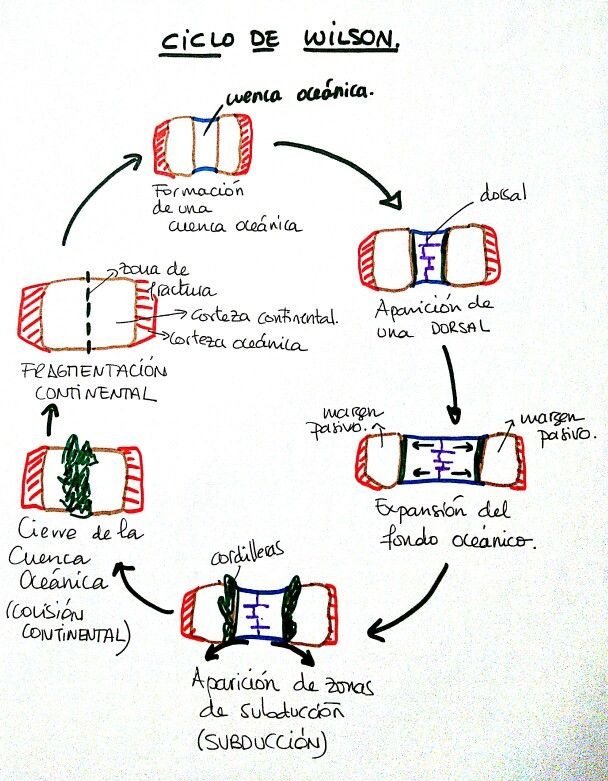 CICLO DE WILSON.
cuenca oceánica.
Formación
de una
cuenca oceánica
dorsal
Aparición de
una DORSAL
margen
pasivo.
margen
pasivo.
Expansión del
fondo oceánico.
cordilleras
Aparición de zonas
de subducción
(SUBDUCCIÓN)
Cierre de la
Cuenca
Oceánica
(COLISIÓN
CONTINENTAL)
zona de
fractura
corteza continental.
corteza oceánica
FRAGMENTACIÓN
CONTINENTAL